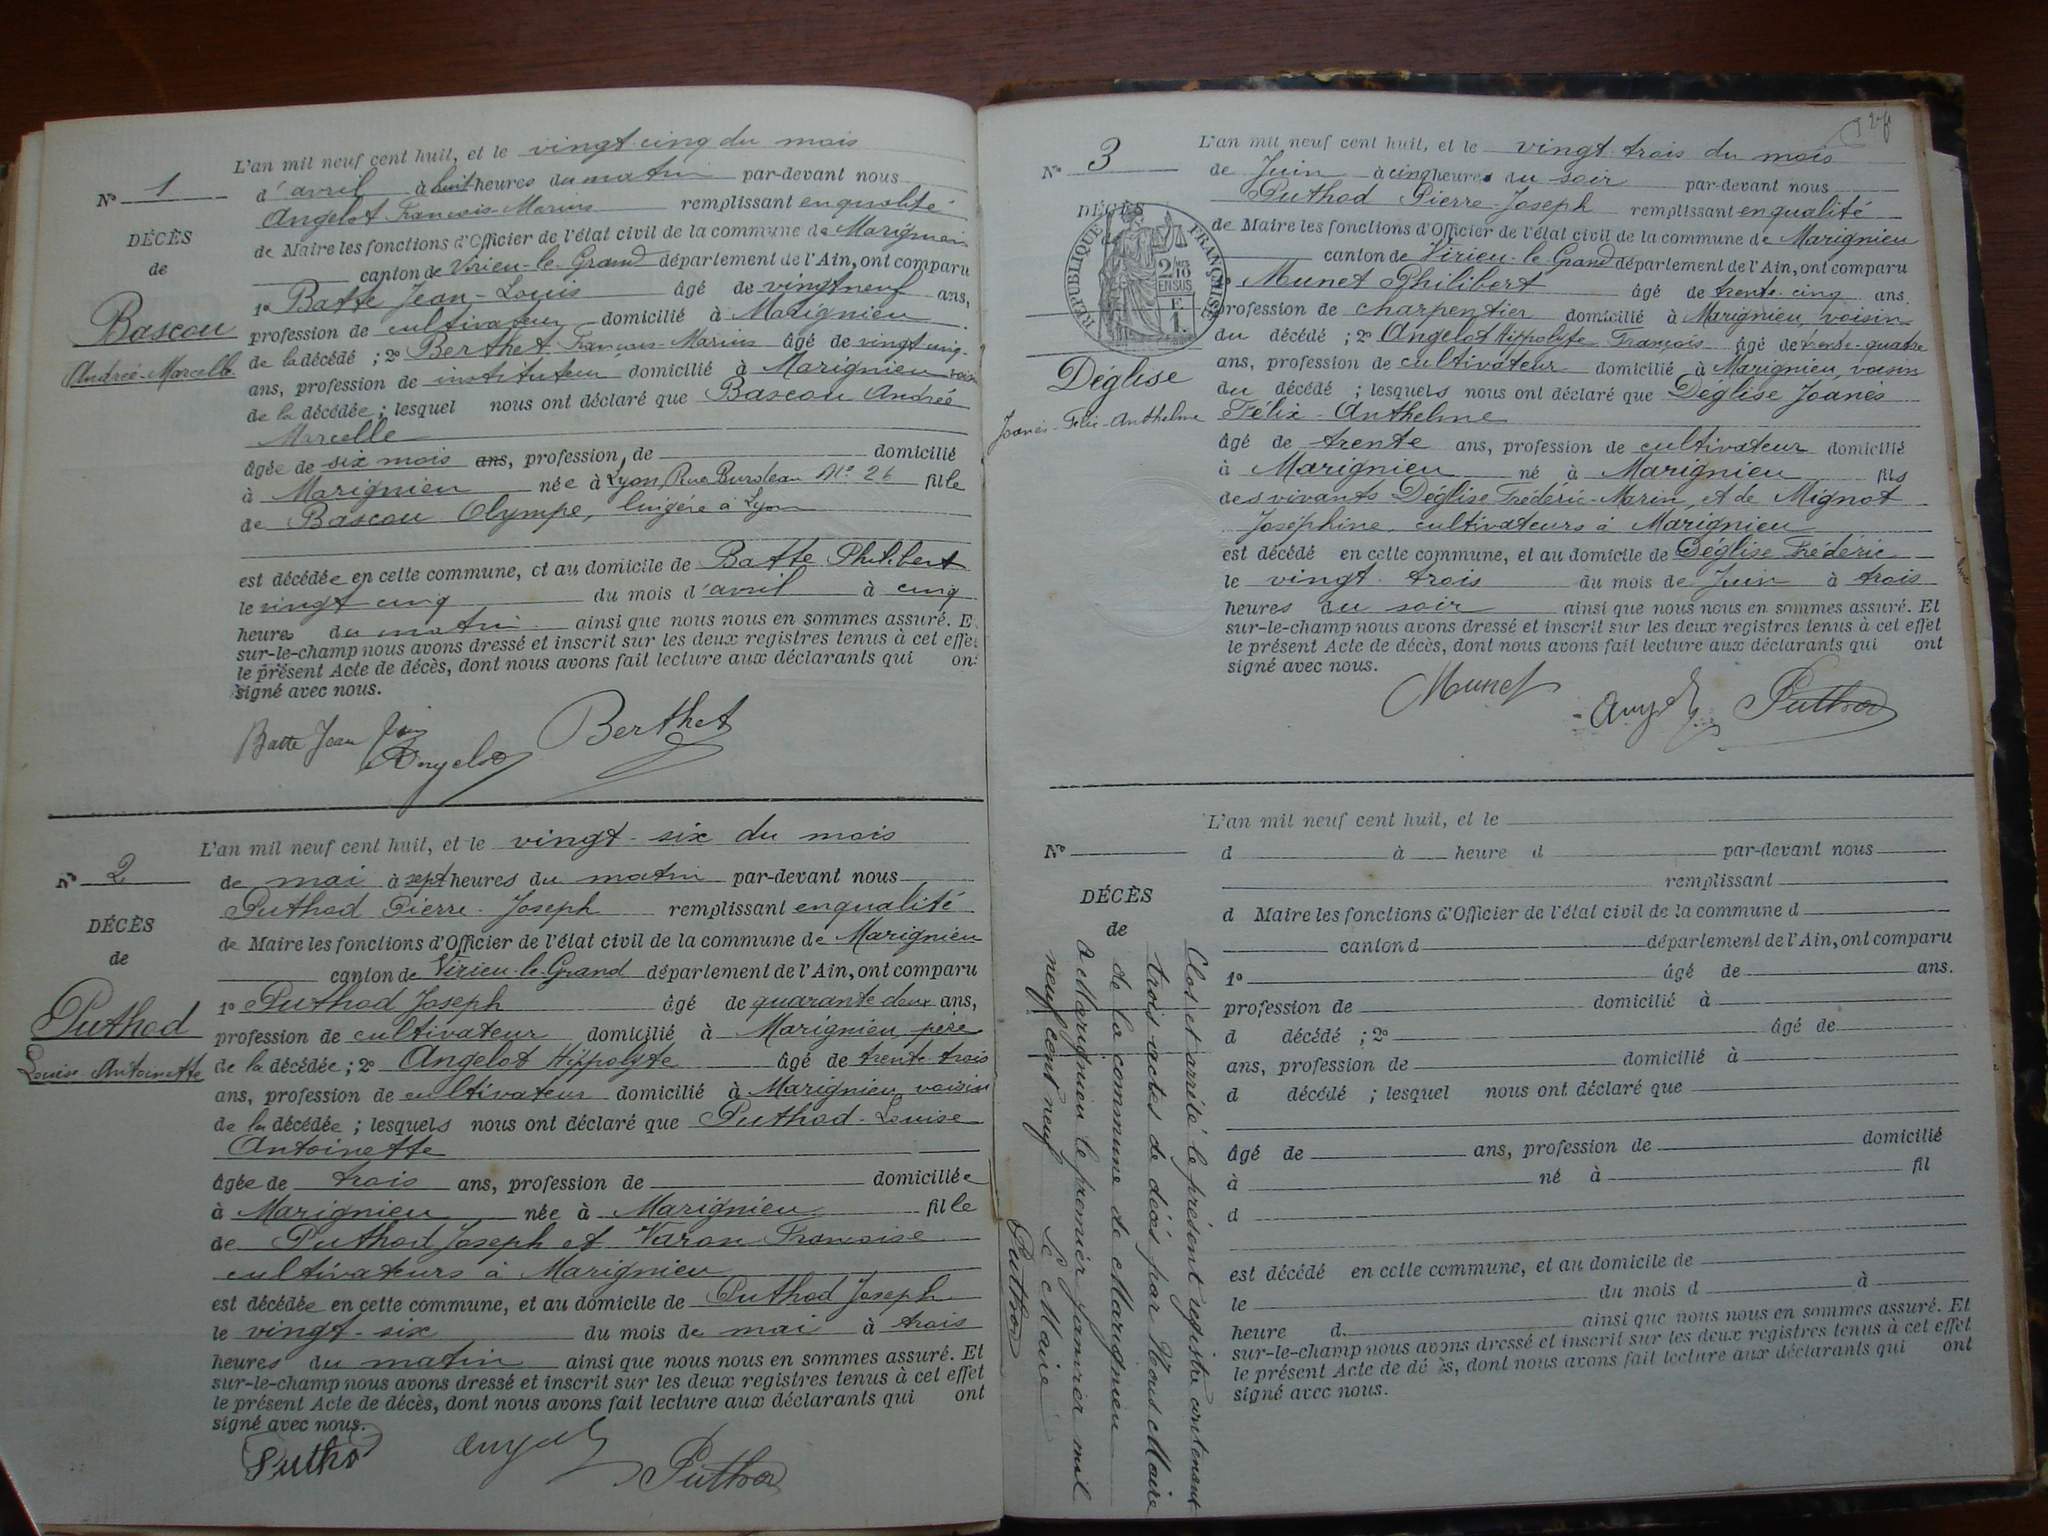 L'an mil neuf cent huit, et le vingt-cinq du mois
N° 1
d'avril à huit heures du matin par-devant nous
Angelot François-Marius remplissant en qualité
de Maire les fonctions d'Officier de l'état civil de la commune de Marignieu
canton de Virieu-le-Grand département de l'Ain, ont comparu
1° Batte Jean-Louis âgé de vingt neuf ans,
profession de cultivateur domicilié à Marignieu
de la décédé ; 2° Berthet François-Marius âgé de vingt cinq
ans, profession de instituteur domicilié à Marignieu voisin
de la décédée ; lesquel nous ont déclaré que Bascou Andrée
Marcelle
âgée de six mois ans, profession de domicilié
à Marignieu née à Lyon, Rue Burdeau N° 26 fille
de Bascou Olympe, lingère à Lyon
est décédée en cette commune, et au domicile de Batte Philibert
le vingt cinq du mois d'avril à cinq
heures du matin ainsi que nous nous en sommes assuré. E
sur-le-champ nous avons dressé et inscrit sur les deux registres tenus à cet effet
le présent Acte de décès, dont nous avons fait lecture aux déclarants qui ont
signé avec nous.
DÉCÈS
de
Bascou
Andrée-Marcelle
Batte Jean
Angelot
Berthet
L'an mil neuf cent huit, et le vingt-six du mois
N° 2
de mai à sept heures du matin par-devant nous
Puthod Pierre-Joseph remplissant en qualité
de Maire les fonctions d'Officier de l'état civil de la commune de Marignieu
canton de Virieu-le-Grand département de l'Ain, ont comparu
1° Puthod Joseph âgé de quarante deux ans,
profession de cultivateur domicilié à Marignieu, père
de la décédée ; 2° Angelot Hippolyte âgé de trente-trois
ans, profession de cultivateur domicilié à Marignieu, voisin
de la décédée ; lesquels nous ont déclaré que Puthod-Louise
Antoinette
âgée de trois ans, profession de domiciliée
à Marignieu née à Marignieu fille
de Puthod Joseph et Varon Françoise
cultivateurs à Marignieu
est décédée en cette commune, et au domicile de Puthod Joseph
le vingt-six du mois de mai à trois
heures du matin ainsi que nous nous en sommes assuré. Et
sur-le-champ nous avons dressé et inscrit sur les deux registres tenus à cet effet
le présent Acte de décès, dont nous avons fait lecture aux déclarants qui ont
signé avec nous.
DÉCÈS
de
Puthod
Louise Antoinette
Puthod
Angelot
Puthod
L'an mil neuf cent huit, et le vingt-trois du mois
N° 3
de Juin à cinq heures du soir par-devant nous
Puthod Pierre-Joseph remplissant en qualité
de Maire les fonctions d'Officier de l'état civil de la commune de Marignieu
canton de Virieu-le-Grand département de l'Ain, ont comparu
Munet Philibert âgé de trente-cinq ans.
profession de charpentier domicilié à Marignieu, voisin
du décédé ; 2° Angelot Hippolyte François âgé de trente-quatre
ans, profession de cultivateur domicilié à Marignieu, voisin
du décédé ; lesquels nous ont déclaré que Déglise Joanès
Félix-Anthelme
âgé de trente ans, profession de cultivateur domicilié
à Marignieu né à Marignieu fils
des vivants Déglise Frédéric-Marin, et de Mignot
Joséphine, cultivateurs à Marignieu
est décédé en cette commune, et au domicile de Déglise Frédéric
le vingt-trois du mois de Juin à trois
heures du soir ainsi que nous nous en sommes assuré. Et
sur-le-champ nous avons dressé et inscrit sur les deux registres tenus à cet effet
le présent Acte de décès, dont nous avons fait lecture aux déclarants qui ont
signé avec nous.
DÉCÈS
RÉPUBLIQUE FRANÇAISE
2/10
EN SUS
F
1.
Déglise
Joanès-Félix-Anthelme
Munet
Angelot
Puthod
L'an mil neuf cent huit, et le
N°
d à heure d par-devant nous
remplissant
d Maire les fonctions d'Officier de l'état civil de la commune d
canton d département de l'Ain, ont comparu
1° âgé de ans.
profession de domicilié à
d décédé ; 2° âgé de
ans, profession de domicilié à
d décédé ; lesquel nous ont déclaré que
âgé de ans, profession de domicilié
à né à fil
d
est décédé en cette commune, et au domicile de
le du mois d à
heure d ainsi que nous nous en sommes assuré. Et
sur-le-champ nous avons dressé et inscrit sur les deux registres tenus à cet effet
le présent Acte de décès, dont nous avons fait lecture aux déclarants qui ont
signé avec nous.
DÉCÈS
de
Clos et arrêté le présent registre contenant
trois actes de décès par Nous Maire
de la commune de Marignieu
A Marignieu le premier janvier mil
neuf cent neuf Le Maire
Puthod